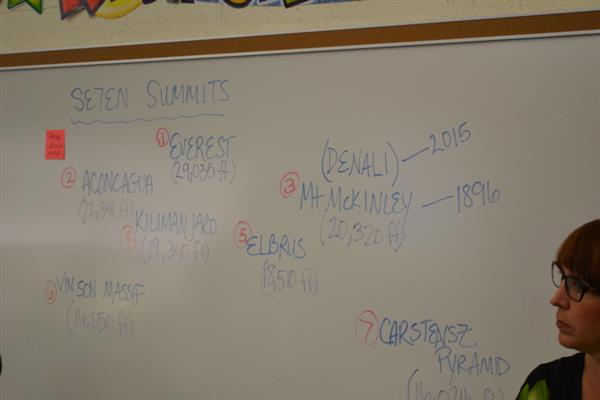 SE7EN SUMMITS
① EVEREST
(29,035 ft)
② ACONCAGUA
(22,841 ft)
③ Mt McKINLEY — 1896
(DENALI) — 2015
(20,320 ft)
④ KILIMANJARO
(19,340 ft)
⑤ ELBRUS
(18,510 ft)
⑥ VINSON MASSIF
(16,050 ft)
⑦ CARSTENSZ
PYRAMID